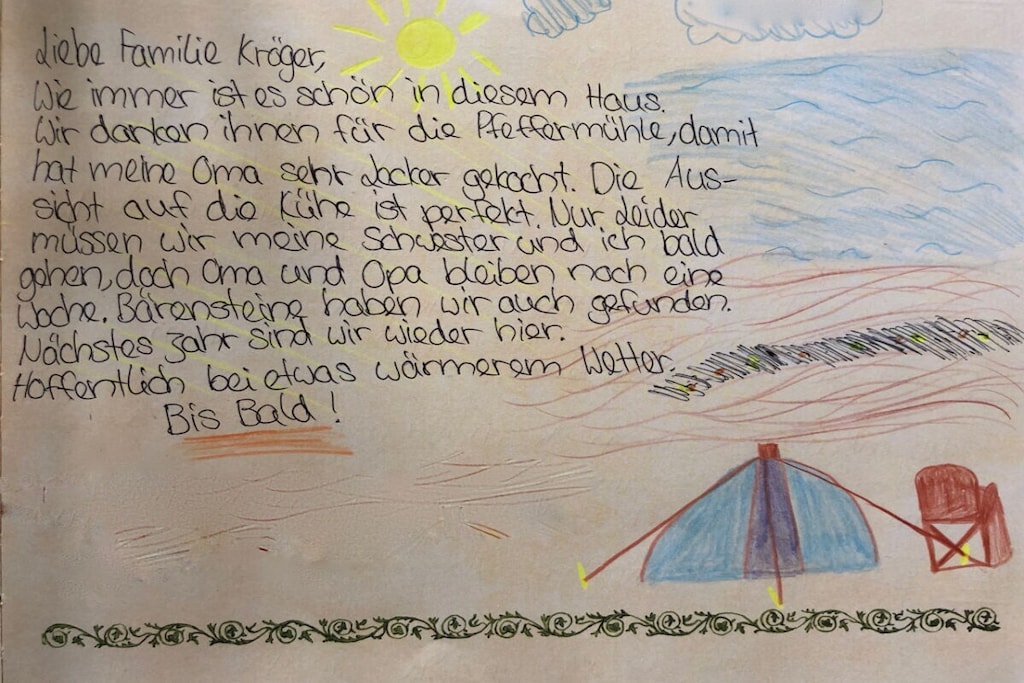 Liebe Familie Kröger,
Wie immer ist es schön in diesem Haus.
Wir danken ihnen für die Pfeffermühle, damit
hat meine Oma sehr Lecker gekocht. Die Aus-
sicht auf die Kühe ist perfekt. Nur Leider
müssen wir meine Schwester und ich bald
gehen, doch Oma und Opa bleiben noch eine
Woche. Bärensteine haben wir auch gefunden.
Nächstes Jahr sind wir wieder hier.
Hoffentlich bei etwas wärmerem Wetter.
Bis Bald!